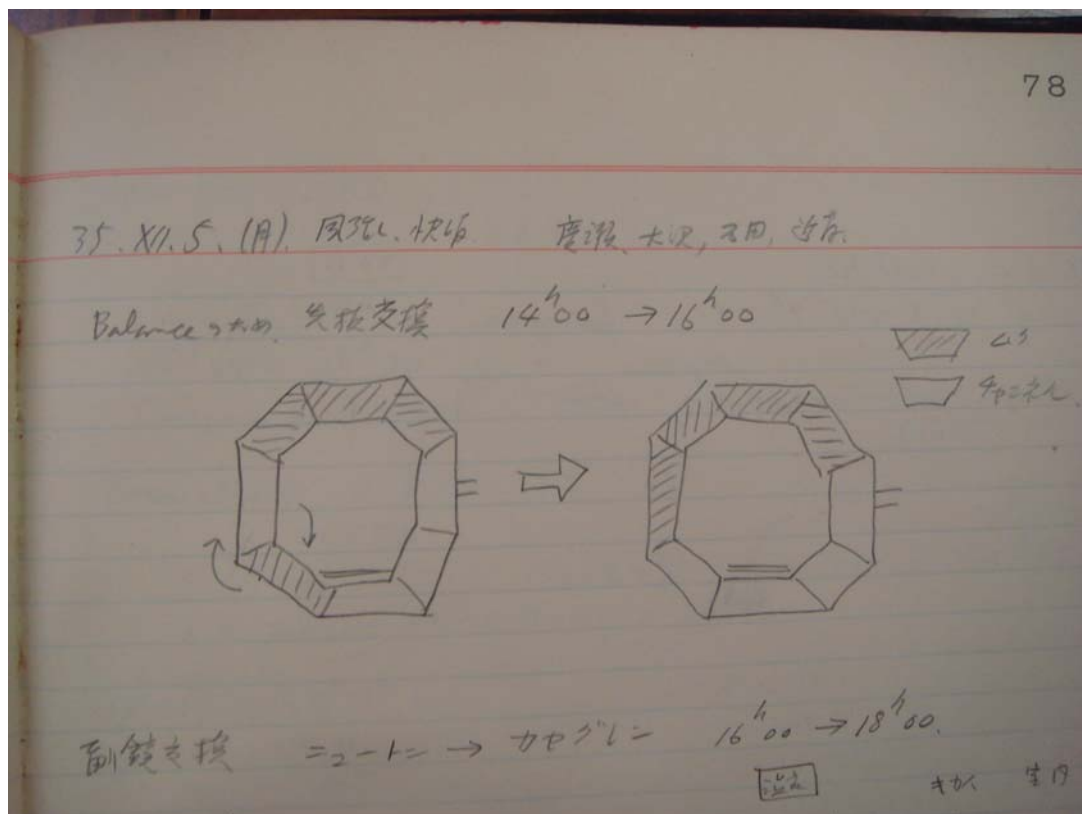 78
35. XII. 5. (月). 風強し、快晴 廣瀬、大沢, 石田, 近存.
Balanceのため、矢板交換 14h00 → 16h00
ムク
チャンネル
副鏡交換 ニュートン → カセグレン 16h00 → 18h00.
温度 キカイ 室内